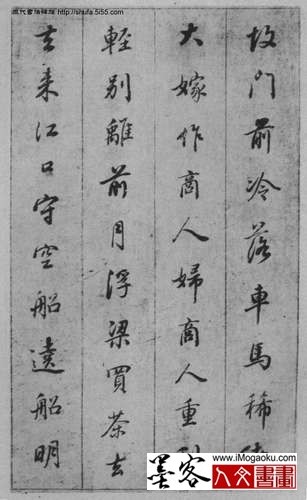 http://shufa.5i55.com
故门前冷落車馬稀
大嫁作商人婦商人重利
輕別離前月浮梁買茶去
去来江口守空船遶船明
www.iMogaoku.com
墨客
人文書畫